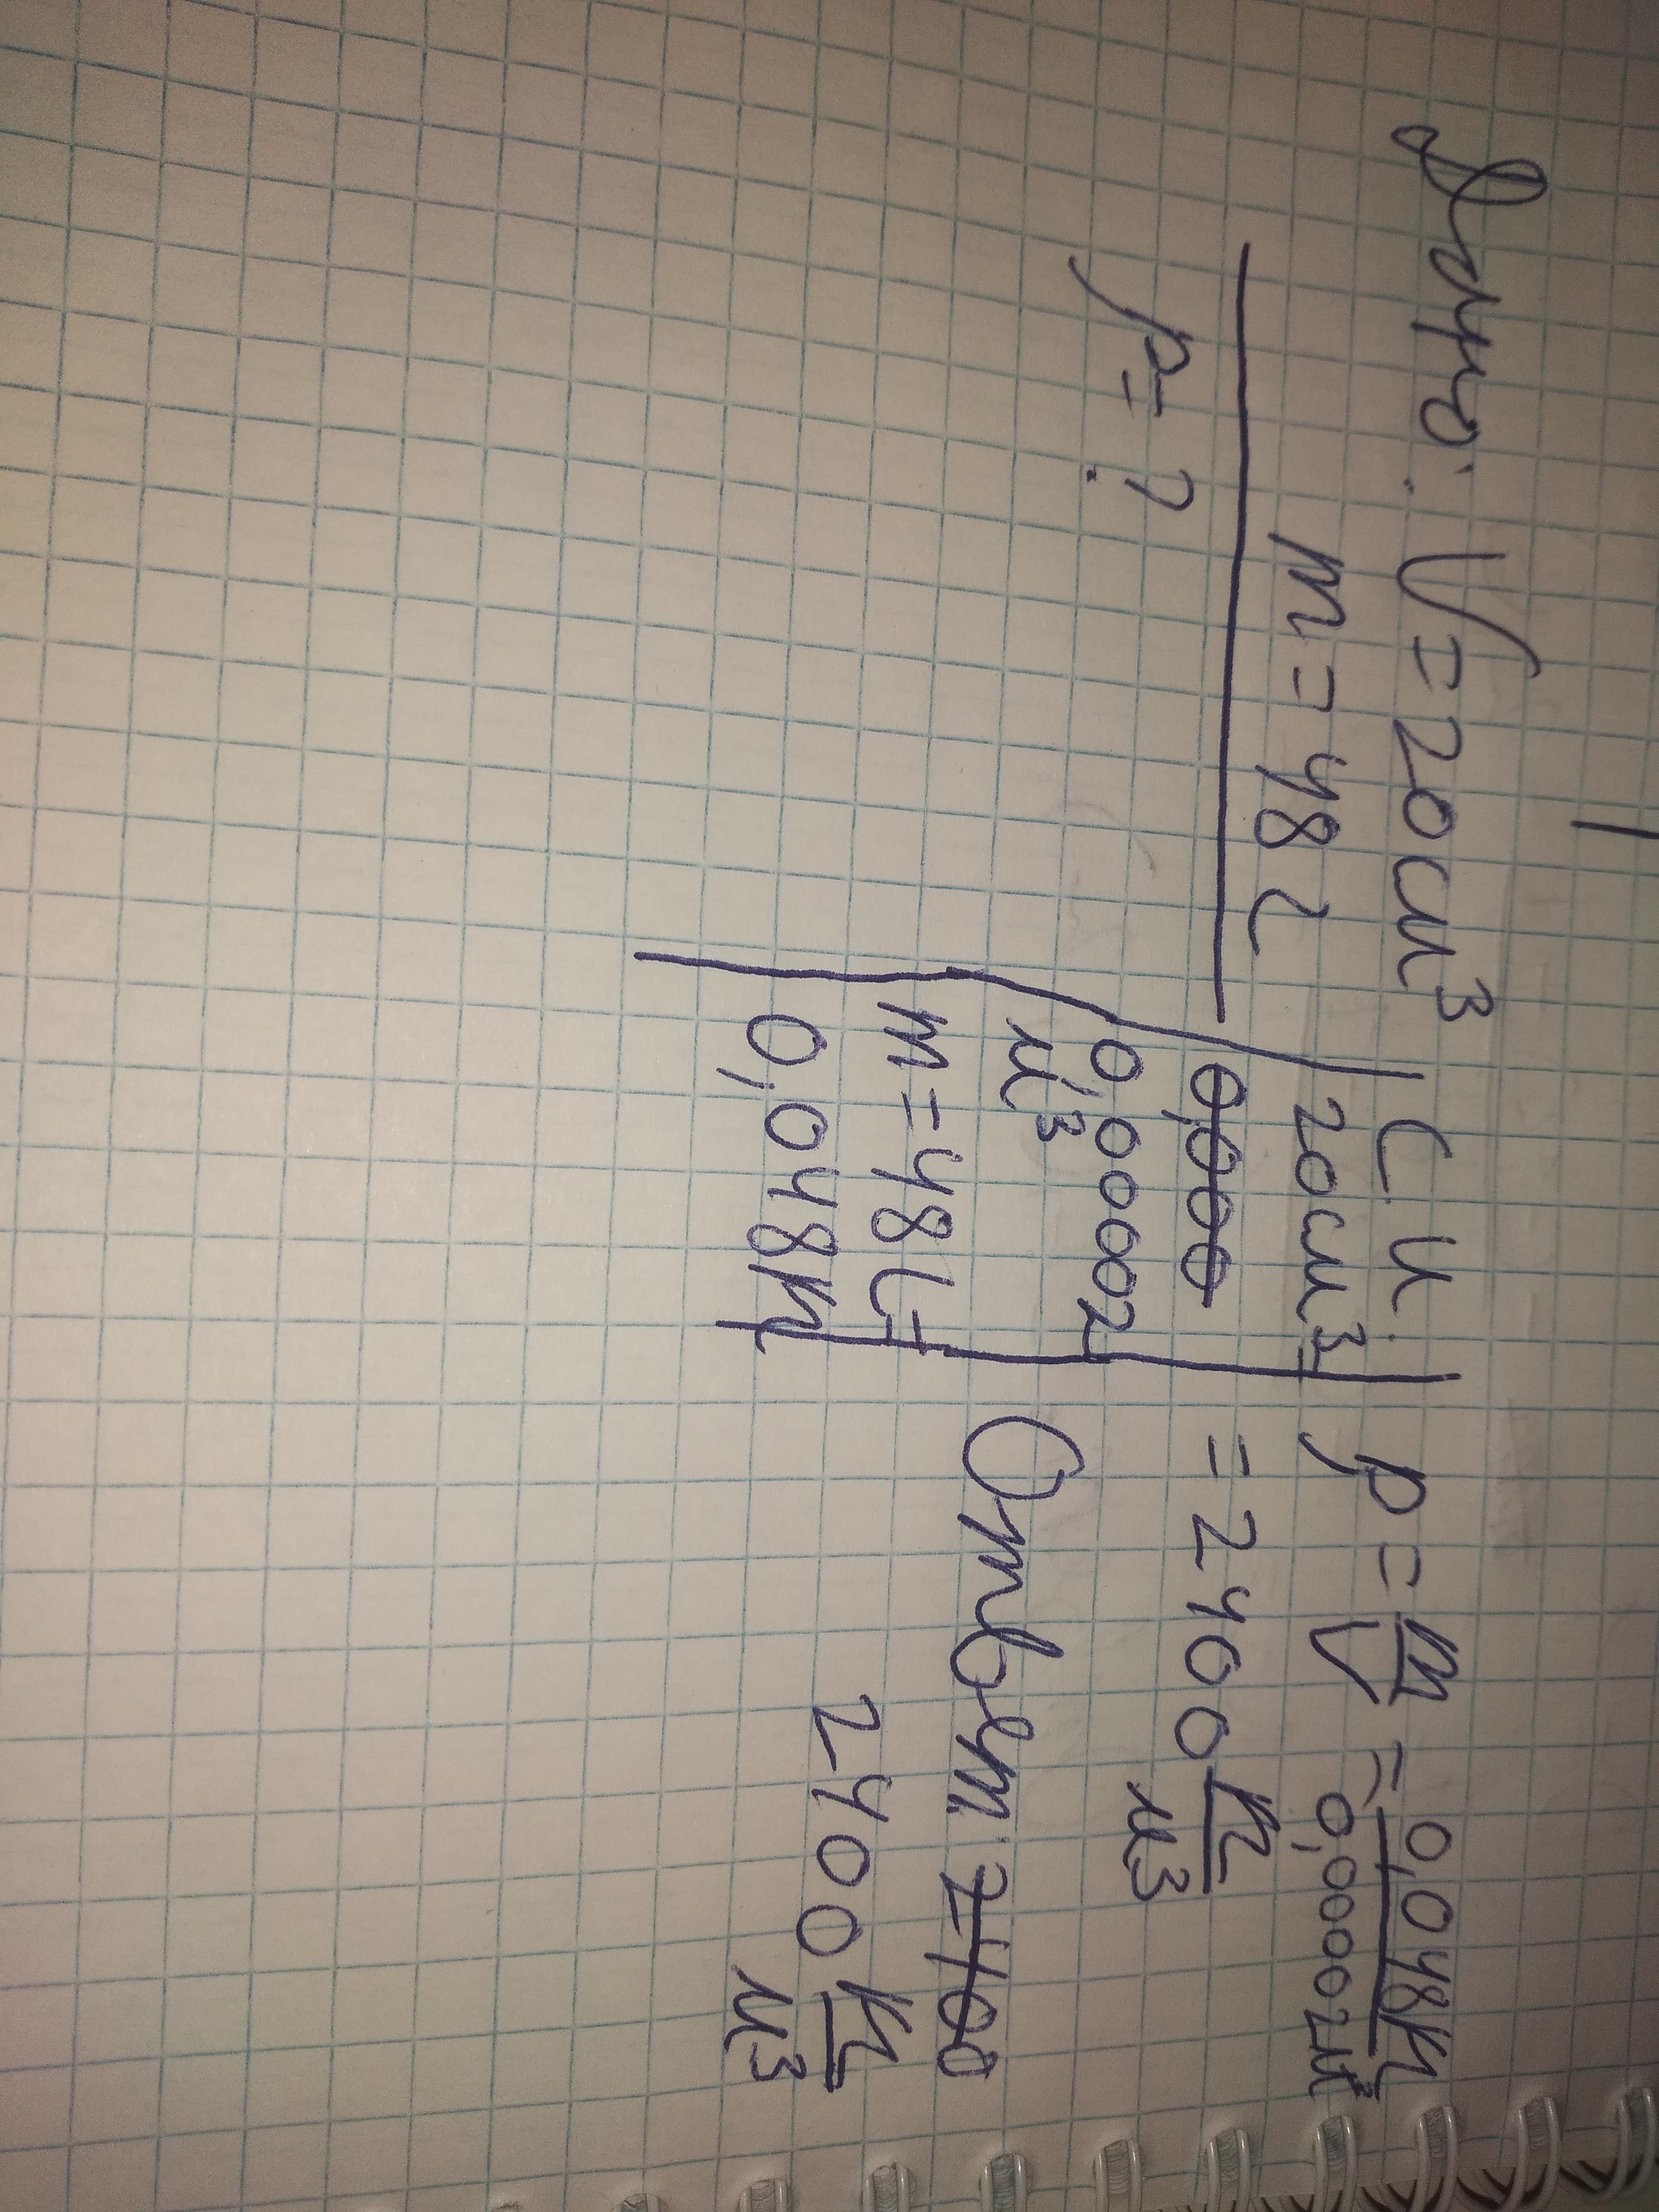 Дано: V=20см³
m=48г
ρ=?
СИ
20см³=
0,000
0,00002
м³
m=48г=
0,048кг
ρ=m/V=0,048кг/0,00002м³
=2400 кг/м³
Ответ: 2400
2400 кг/м³